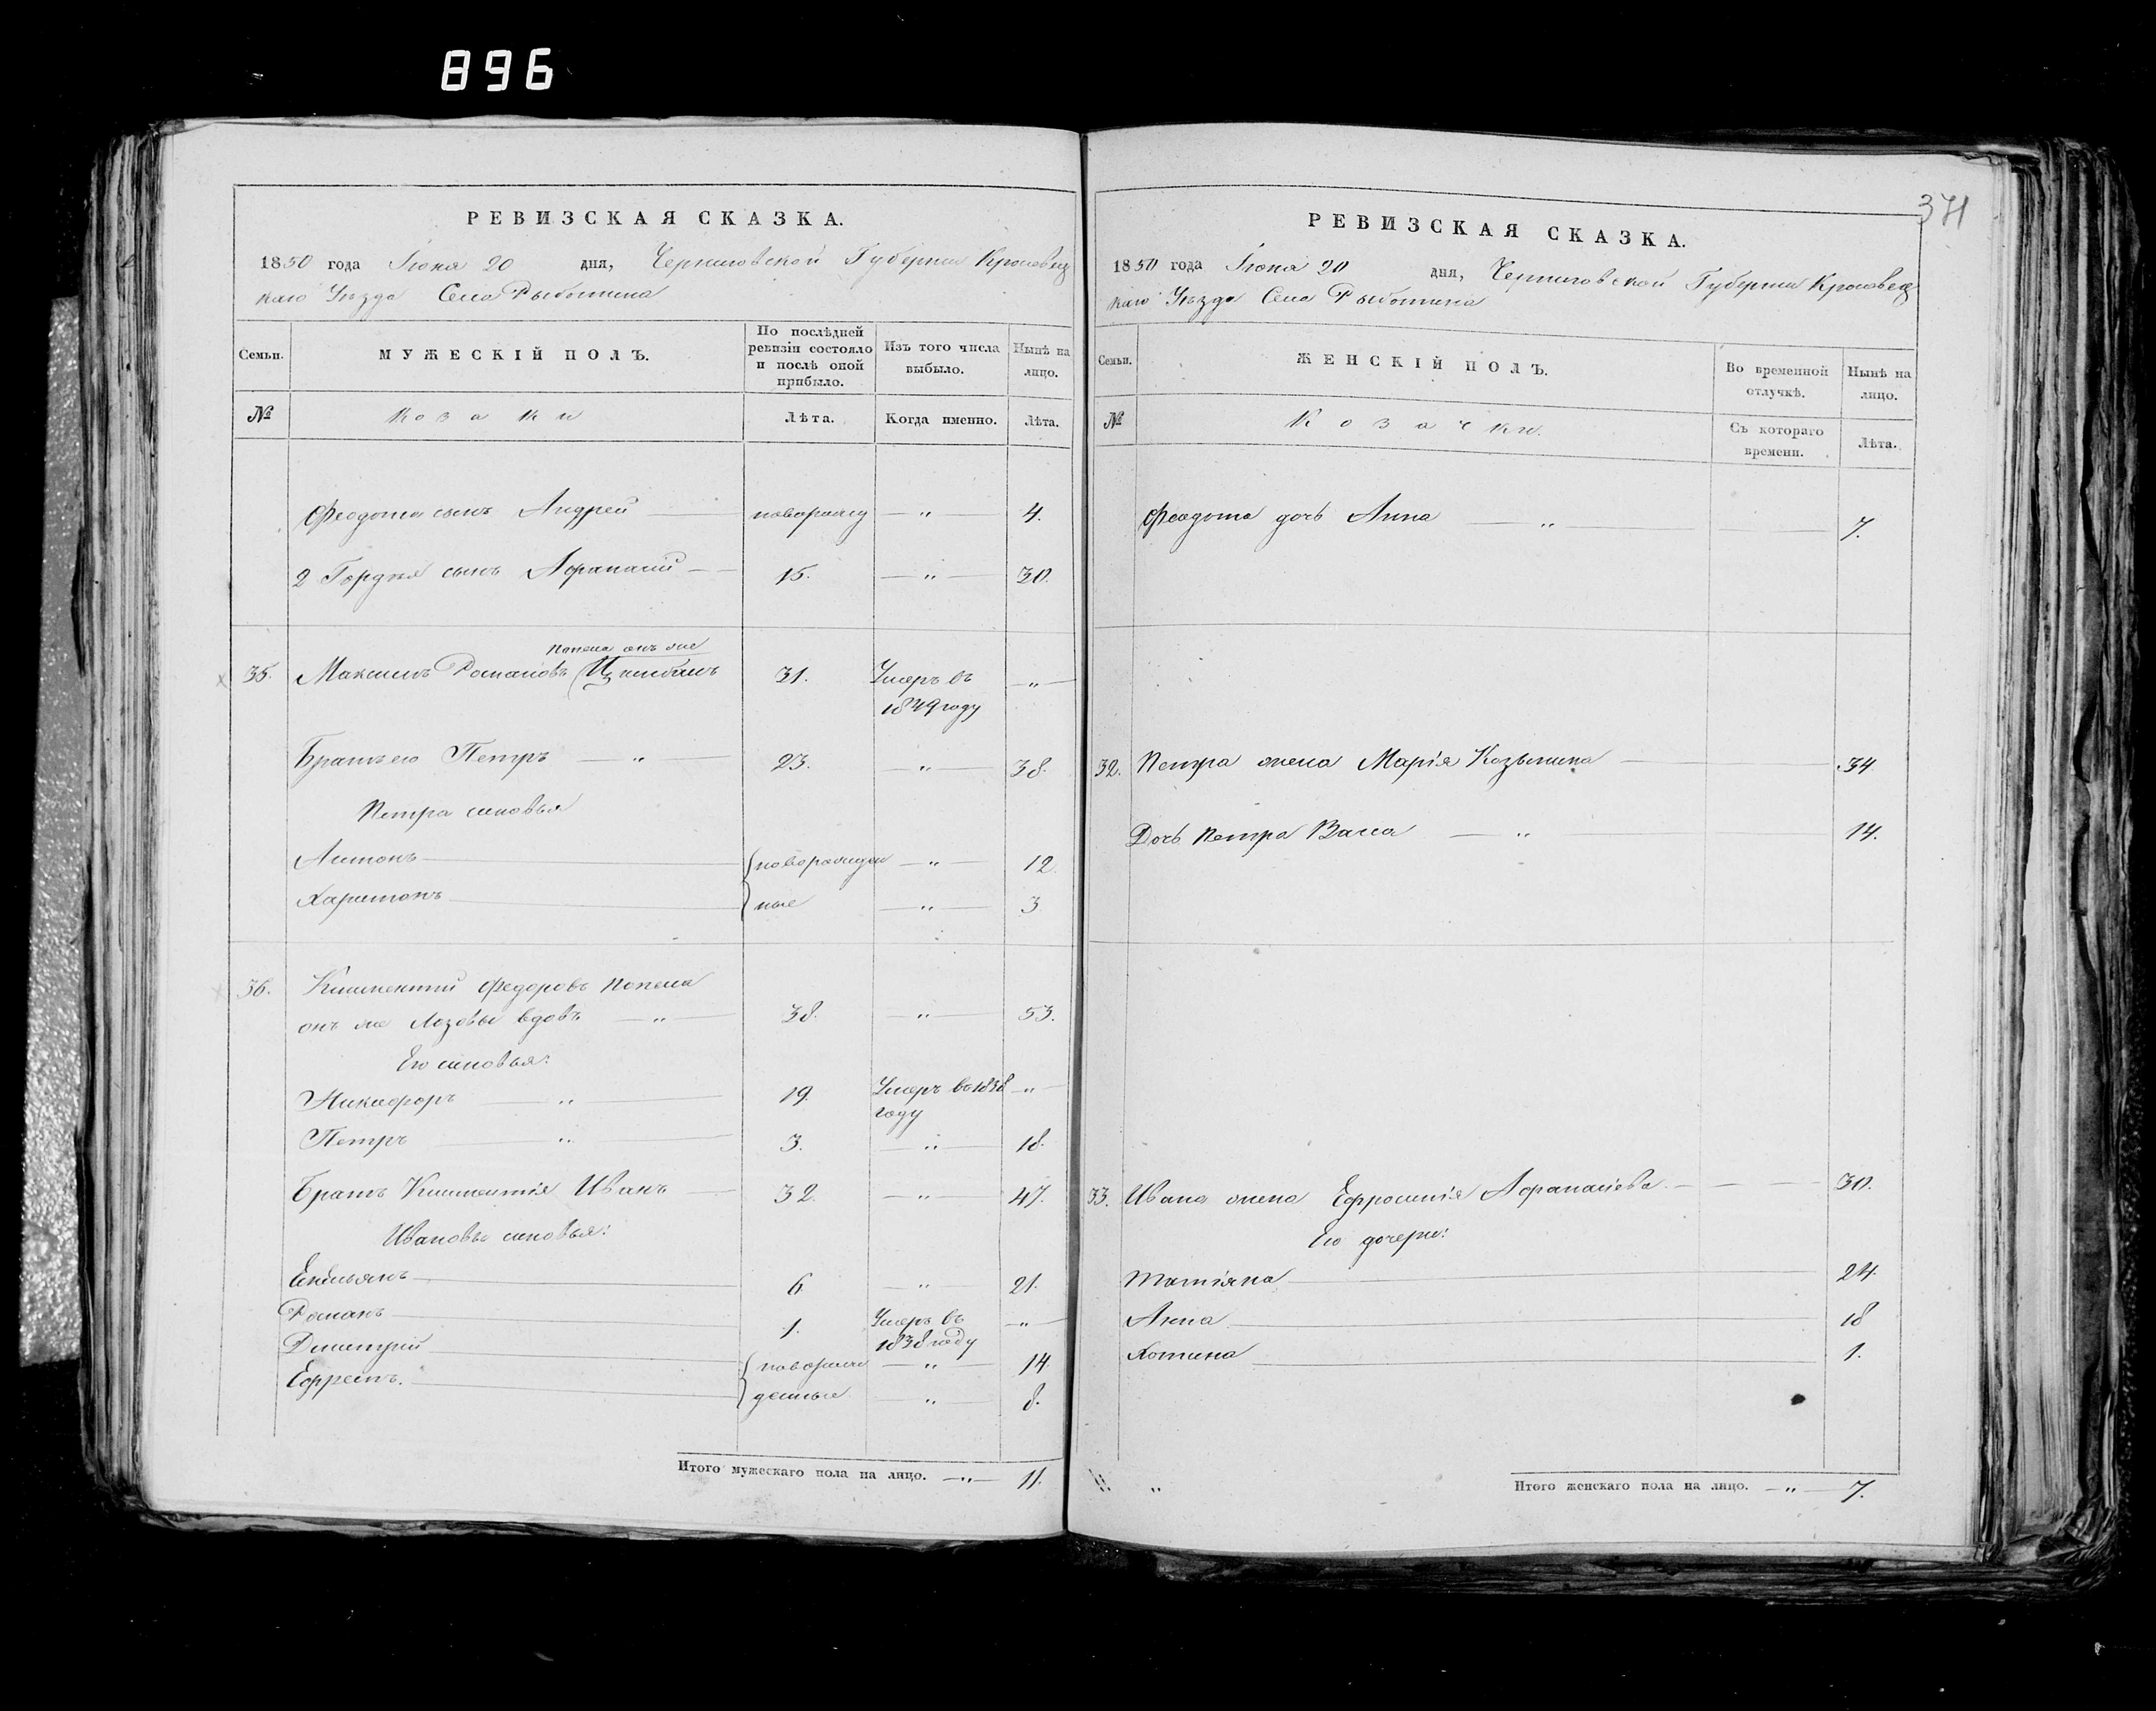 896
371
РЕВИЗСКАЯ СКАЗКА.
1850 года Іюня 20 дня, Черниговской Губерніи Кролевец
каго Уѣзда Села Рыботина
Семьи.
МУЖЕСКІЙ ПОЛЪ.
По послѣдней ревизіи состояло и послѣ оной прибыло.
Изъ того числа выбыло.
Нынѣ на лицо.
№
Козаки
Лѣта.
Когда именно.
Лѣта.
Феодота сынъ Андрей новорожд „ 4.
2 Гордѣя сынъ Афанасий 15. „ 30.
Попена онъ же
35. Максимъ Романовъ 31. Умеръ въ „
1849 году
Братъ его Петръ „ 23. „ 38.
Петра сыновья
Антонъ новорожден „ 12
Харитонъ ные „ 3
36. Климентий Федоровъ Попена
онъ же Лозовы вдовъ „ 38. „ 53.
Его сыновья:
Никифоръ „ 19. Умеръ въ 1838 „
году
Петръ „ 3. „ 18.
Братъ Климентія Иванъ 32. „ 47.
Ивановы сыновья:
Емельянъ 6 „ 21.
Романъ 1. Умеръ въ „
1838 году
Дмитрий новорож „ 14
Ефремъ. денные „ 8.
Итого мужескаго пола на лицо. „ 11.
РЕВИЗСКАЯ СКАЗКА.
1850 года Іюня 20 дня, Черниговской Губерніи Кролевец
каго Уѣзда Села Рыботина
Семьи.
ЖЕНСКІЙ ПОЛЪ.
Во временной отлучкѣ.
Нынѣ на лицо.
№
Козачки.
Съ котораго времени.
Лѣта.
Феодота дочь Анна „ 7.
32. Петра жена Марія Козьмина 34
Дочь Петра Васса „ 14.
33. Ивана жена Ефросинія Афанасіева 30.
Его дочери:
Татіяна 24.
Анна 18
Хотина 1.
Итого женскаго пола на лицо. „ 7.